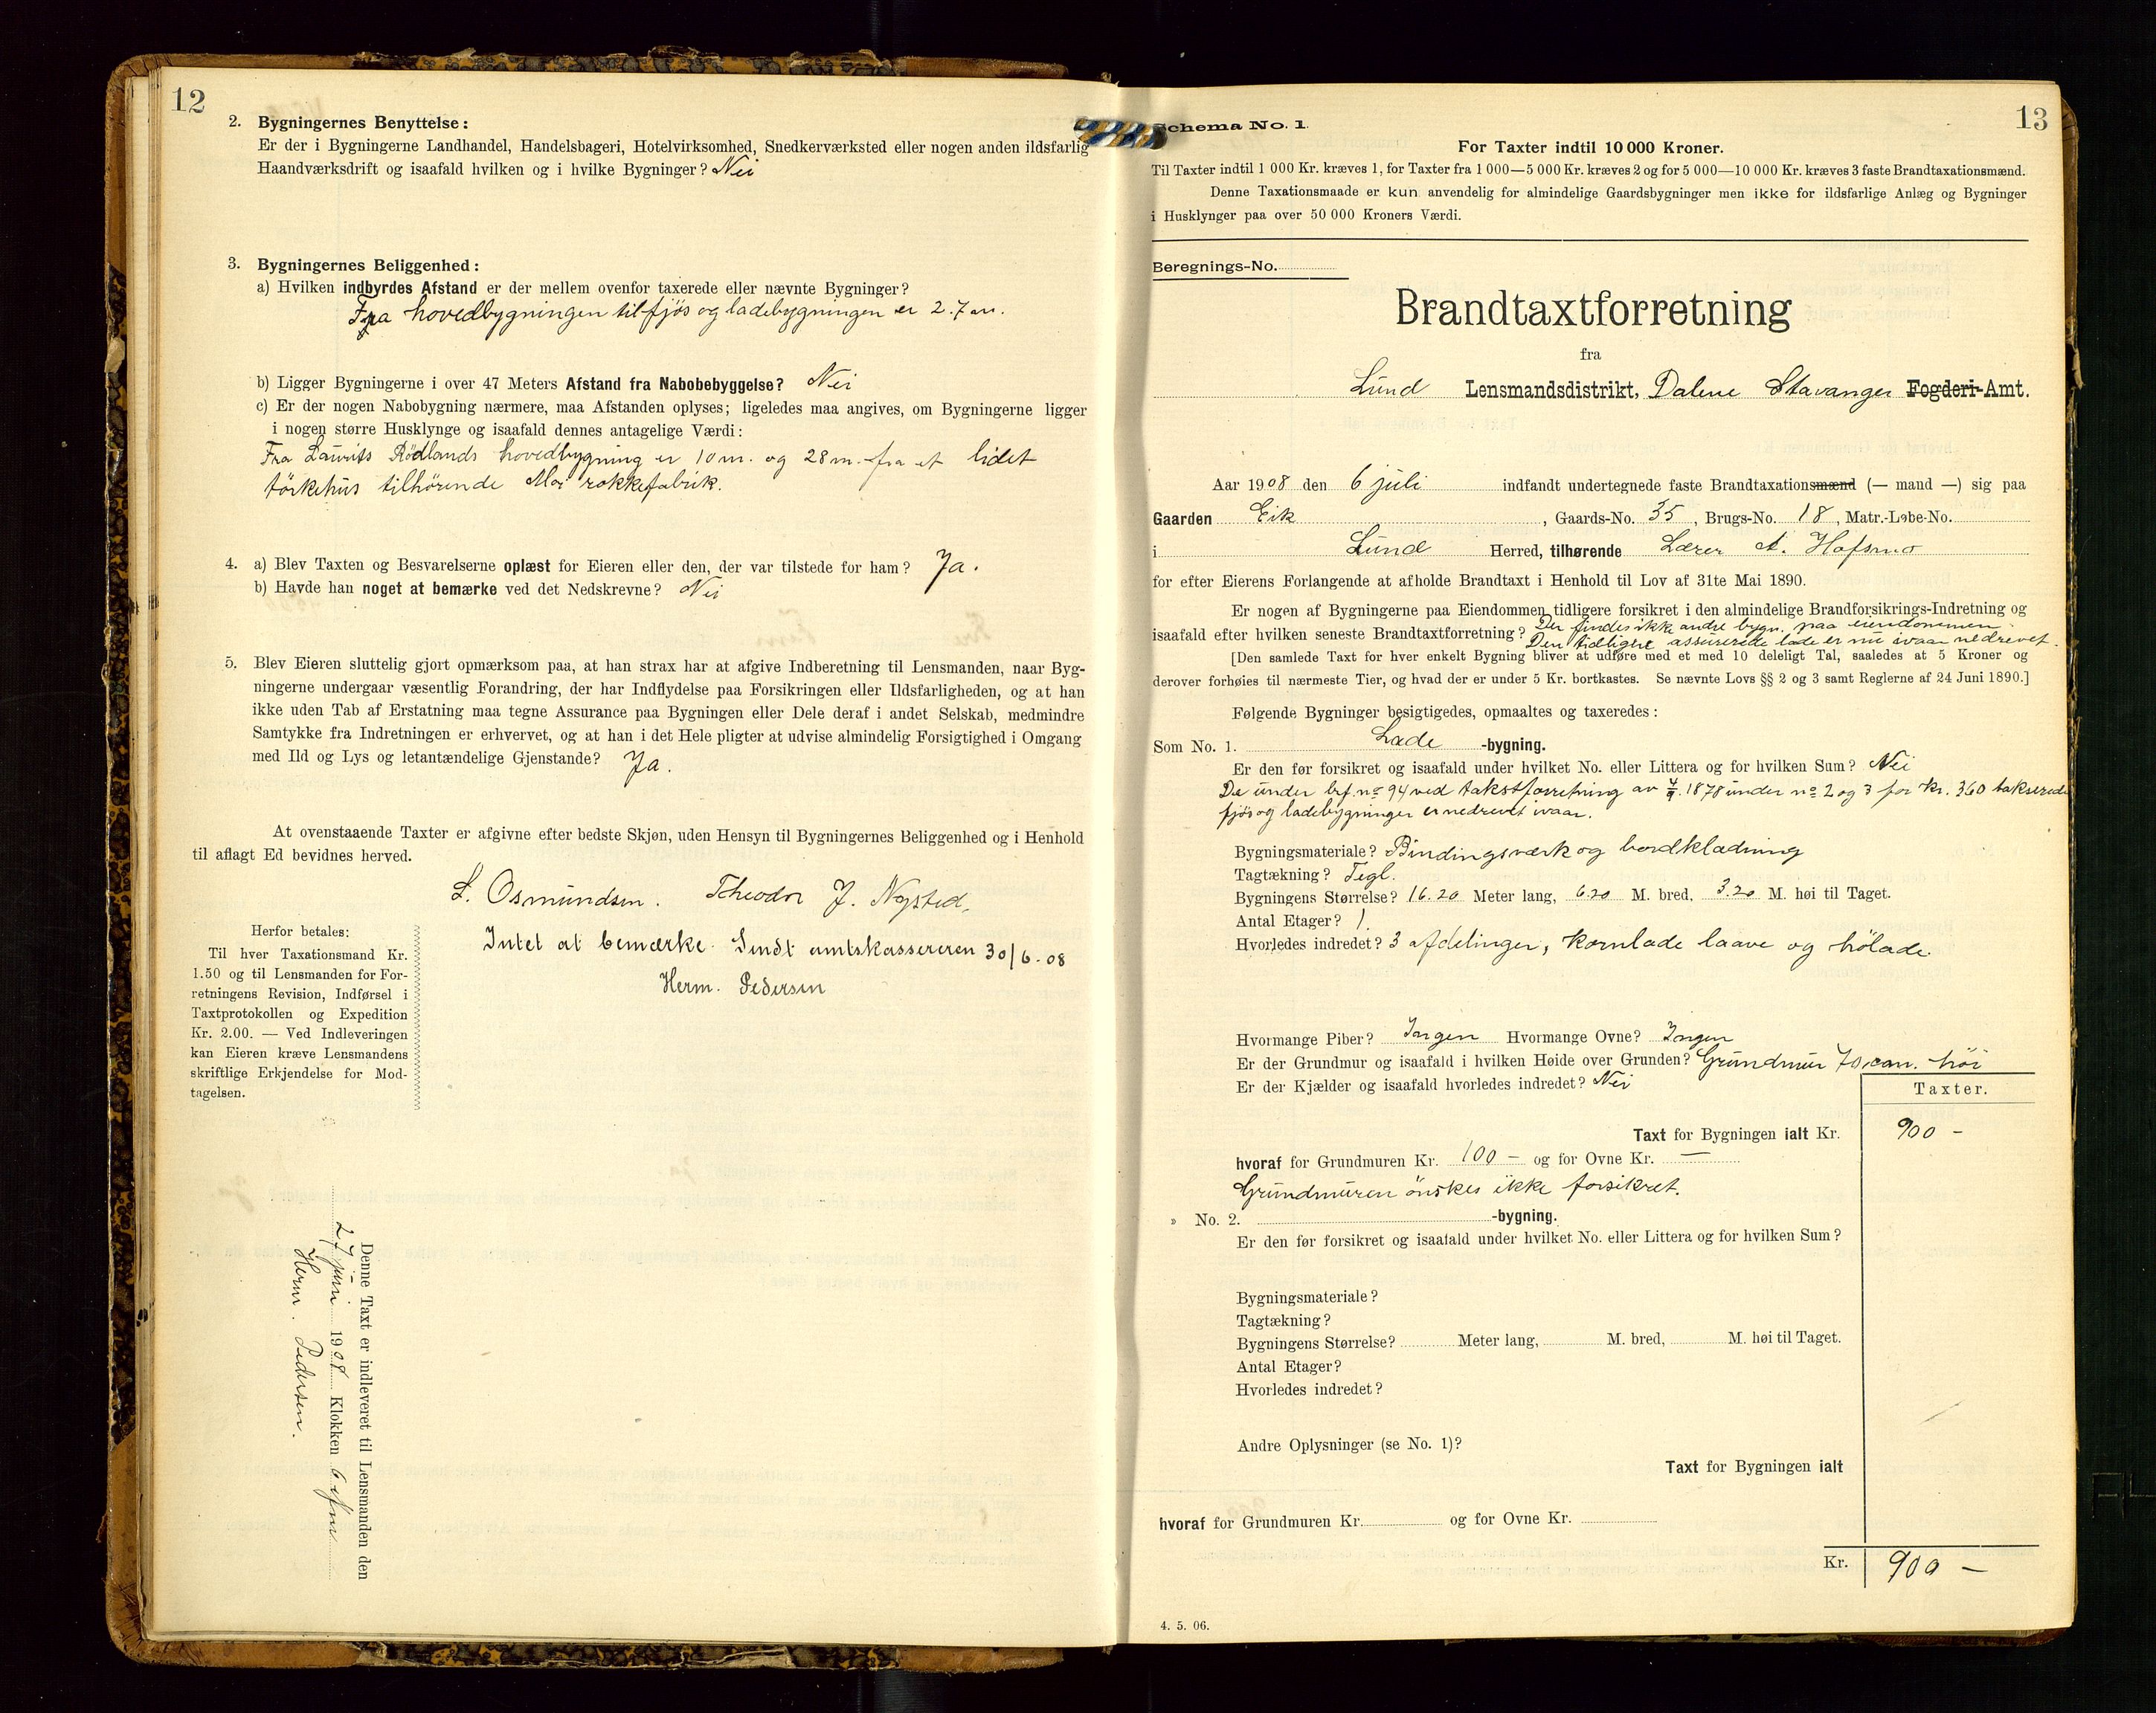 12
2. Bygningernes Benyttelse:
Er der i Bygningerne Landhandel, Handelsbageri, Hotelvirksomhed, Snedkerværksted eller nogen anden ildsfarlig
Haandværksdrift og isaafald hvilken og i hvilke Bygninger? Nei
3. Bygningernes Beliggenhed:
a) Hvilken indbyrdes Afstand er der mellem ovenfor taxerede eller nævnte Bygninger?
Fra hovedbygningen til fjøs og ladebygningen er 2.7 m.
b) Ligger Bygningerne i over 47 Meters Afstand fra Nabobebyggelse? Nei
c) Er der nogen Nabobygning nærmere, maa Afstanden oplyses; ligeledes maa angives, om Bygningerne ligger
i nogen større Husklynge og isaafald dennes antagelige Værdi:
Fra Laurits Rødlands hovedbygning er 10 m. og 28 m. fra et lidet
tørkehus tilhørende Moi rokkefabrik.
4. a) Blev Taxten og Besvarelserne oplæst for Eieren eller den, der var tilstede for ham? Ja.
b) Havde han noget at bemærke ved det Nedskrevne? Nei
5. Blev Eieren sluttelig gjort opmærksom paa, at han strax har at afgive Indberetning til Lensmanden, naar Byg-
ningerne undergaar væsentlig Forandring, der har Indflydelse paa Forsikringen eller Ildsfarligheden, og at han
ikke uden Tab af Erstatning maa tegne Assurance paa Bygningen eller Dele deraf i andet Selskab, medmindre
Samtykke fra Indretningen er erhvervet, og at han i det Hele pligter at udvise almindelig Forsigtighed i Omgang
med Ild og Lys og letantændelige Gjenstande? Ja.
At ovenstaaende Taxter er afgivne efter bedste Skjøn, uden Hensyn til Bygningernes Beliggenhed og i Henhold
til aflagt Ed bevidnes herved.
L. Osmundsen. Theodor J. Nysted.
Intet at bemærke. Sendt amtskassereren 30/6-08
Herm. Pedersen
Herfor betales:
Til hver Taxationsmand Kr.
1.50 og til Lensmanden for For-
retningens Revision, Indførsel i
Taxtprotokollen og Expedition
Kr. 2.00. — Ved Indleveringen
kan Eieren kræve Lensmandens
skriftlige Erkjendelse for Mod-
tagelsen.
Denne Taxt er indleveret til Lensmanden den
27 juni 1908 Klokken 6 efm
Herm. Pedersen.
13
Schema No. 1.
For Taxter indtil 10 000 Kroner.
Til Taxter indtil 1 000 Kr. kræves 1, for Taxter fra 1 000—5 000 Kr. kræves 2 og for 5 000—10 000 Kr. kræves 3 faste Brandtaxationsmænd.
Denne Taxationsmaade er kun anvendelig for almindelige Gaardsbygninger men ikke for ildsfarlige Anlæg og Bygninger
i Husklynger paa over 50 000 Kroners Værdi.
Beregnings-No.
Brandtaxtforretning
fra
Lund Lensmandsdistrikt, Dalene Stavanger Fogderi-Amt.
Aar 1908 den 6 juli indfandt undertegnede faste Brandtaxationsmænd (— mand —) sig paa
Gaarden Eik, Gaards-No. 35, Brugs-No. 18, Matr.-Løbe-No.
i Lund Herred, tilhørende Lærer A. Hofsmo
for efter Eierens Forlangende at afholde Brandtaxt i Henhold til Lov af 31te Mai 1890.
Er nogen af Bygningerne paa Eiendommen tidligere forsikret i den almindelige Brandforsikrings-Indretning og
isaafald efter hvilken seneste Brandtaxtforretning? Der findes ikke andre bygn. paa eiendommen.
Den tidligere assurerede lade er nu ivaar nedrevet.
[Den samlede Taxt for hver enkelt Bygning bliver at udføre med et med 10 deleligt Tal, saaledes at 5 Kroner og
derover forhøies til nærmeste Tier, og hvad der er under 5 Kr. bortkastes. Se nævnte Lovs §§ 2 og 3 samt Reglerne af 24 Juni 1890.]
Følgende Bygninger besigtigedes, opmaaltes og taxeredes:
Som No. 1. Lade -bygning.
Er den før forsikret og isaafald under hvilket No. eller Littera og for hvilken Sum? Nei
De under brf. no 94 ved takstforretning av 1878 under no 2 og 3 for kr. 360 takserede
fjøs og ladebygninger er nedrevet ivaar.
Bygningsmateriale? Bindingsværk og bordklædning
Tagtækning? Tegl.
Bygningens Størrelse? 16.20 Meter lang, 6.20 M. bred, 3.20 M. høi til Taget.
Antal Etager? 1.
Hvorledes indredet? 3 afdelinger, kornlade laave og hølade.
Hvormange Piber? Ingen Hvormange Ovne? Ingen
Er der Grundmur og isaafald i hvilken Høide over Grunden? Grundmur 70 cm. høi
Er der Kjælder og isaafald hvorledes indredet? Nei
Taxter.
Taxt for Bygningen ialt Kr. 900 -
hvoraf for Grundmuren Kr. 100 - og for Ovne Kr. —
Grundmuren ønskes ikke forsikret.
» No. 2. -bygning.
Er den før forsikret og isaafald under hvilket No. eller Littera og for hvilken Sum?
Bygningsmateriale?
Tagtækning?
Bygningens Størrelse? Meter lang, M. bred, M. høi til Taget.
Antal Etager?
Hvorledes indredet?
Andre Oplysninger (se No. 1)?
Taxt for Bygningen ialt
hvoraf for Grundmuren Kr. og for Ovne Kr.
Kr. 900 —
4. 5. 06.